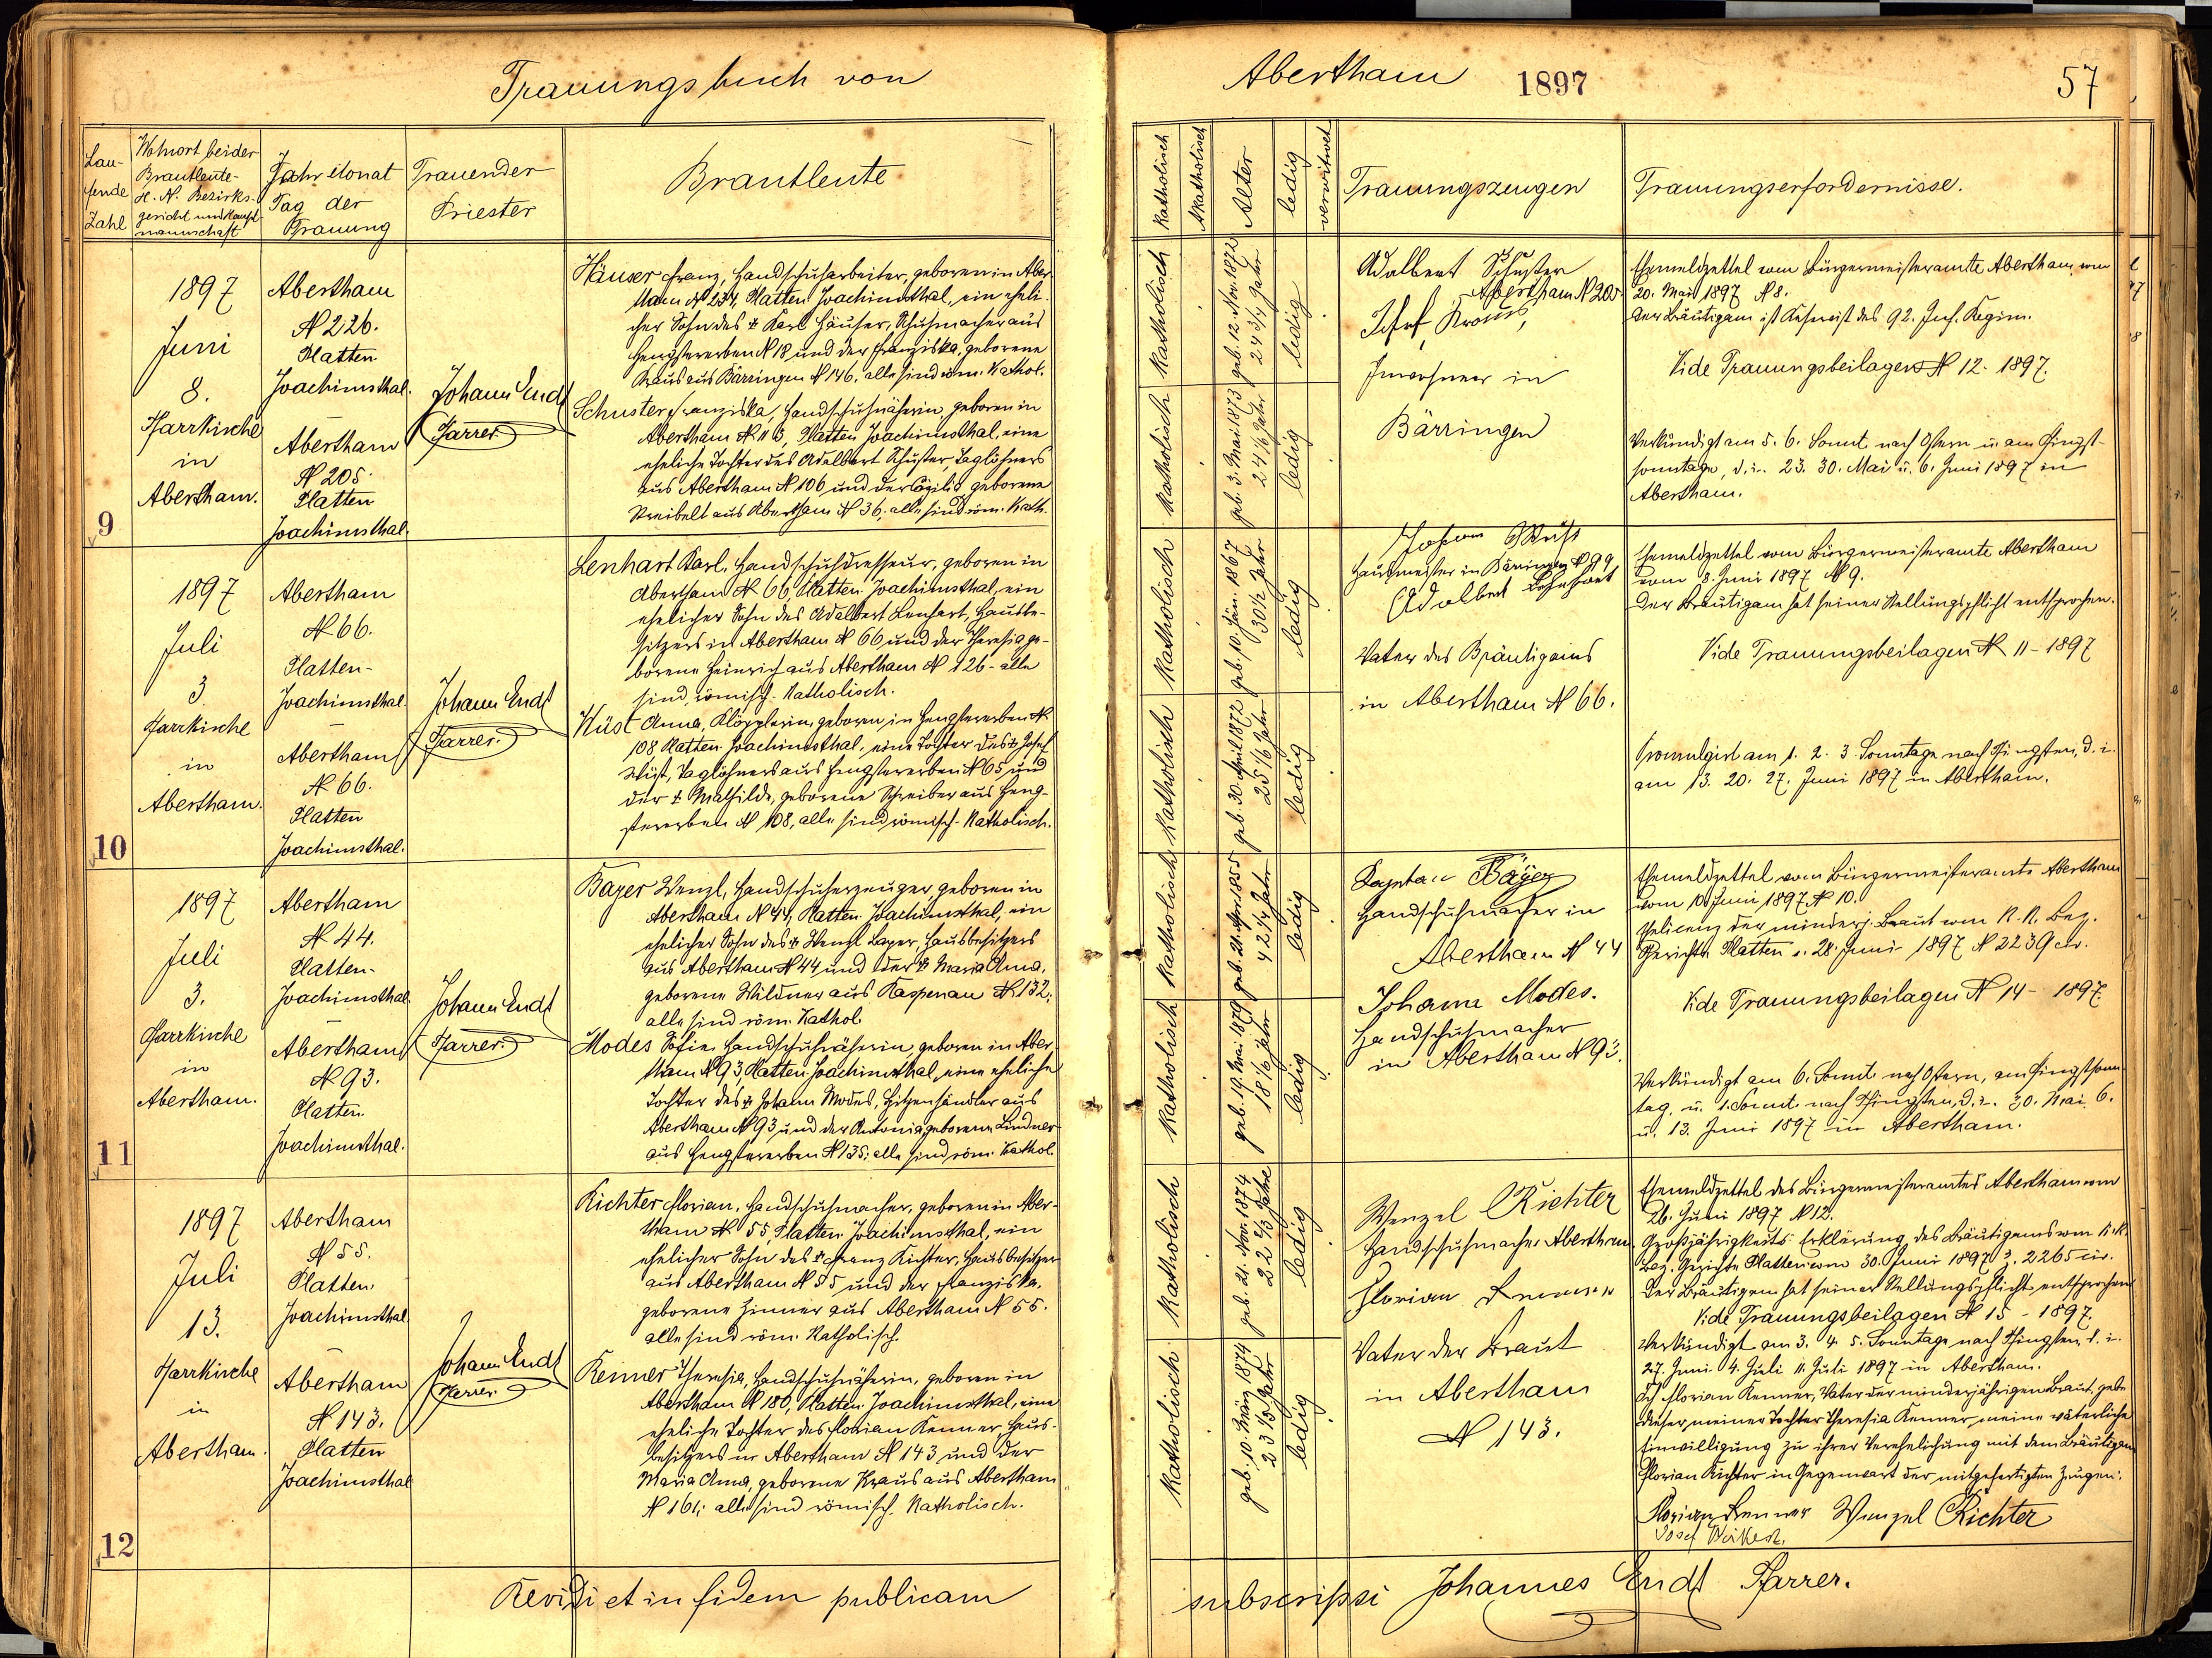 Trauungsbuch von
Abertham 1897 57
Laufende Zahl
Wohnort beider
Brautleute
H. N. Bezirks-
gericht und Haupt-
mannschaft
Jahr Monat
Tag der
Trauung
Trauender
Priester
Brautleute
Katholisch
Akatholisch
Alter
ledig
verwitwet
Trauungszeugen
Trauungserfordernisse.
9
1897
Juni
8.
Pfarrkirche
in
Abertham.
Abertham
N 226.
Platten
Joachimsthal.
Abertham
N 205.
Platten
Joachimsthal.
Johann Endt
Pfarrer
Häuser Franz, Handschuharbeiter, geboren in Aber-
tham N 234, Platten Joachimsthal, ein eheli-
cher Sohn des † Karl Häuser, Schuhmacher aus
Hengstererben N 18 und der Franziska, geborene
Kraus aus Bärringen N 146. alle sind röm. Kathol.
Schuster Franziska, Handschuhnäherin, geboren in
Abertham N 113, Platten Joachimsthal, eine
eheliche Tochter des Adalbert Schuster, Taglöhners
aus Abertham N 106 und der Cäzilia geborene
aus Abertham N 36; alle sind röm. Kath.
Katholisch
geb. 12. Nov. 1872
24 3/4 Jahr
ledig
Katholisch
geb. 3. Mai. 1873
24 1/6 Jahr
ledig
Adalbert Schuster
Abertham N 205
Josef Kraus,
Inwohner in
Bärringen
Ehemeldzettel vom Bürgermeisteramte Abertham vom
20. Mai 1897 N 8.
Der Bräutigam ist Reservist des 92. Inf. Regim.
Vide Trauungsbeilagen N 12. 1897.
Verkündigt am 5. 6. Sonnt. nach Ostern u. am Pfingst-
sonntage, d. i. 23. 30. Mai u. 6. Juni 1897 in
Abertham.
10
1897
Juli
3
Pfarrkirche
in
Abertham.
Abertham
N 66.
Platten-
Joachimsthal.
Abertham
N 66.
Platten
Joachimsthal.
Johann Endt
Pfarrer.
Lenhart Karl, Handschuhdresseur, geboren in
Abertham N 66, Platten Joachimsthal, ein
ehelicher Sohn des Adalbert Lenhart, Hausbe-
sitzers in Abertham N 66 und der Theresia ge-
borene Heinrich aus Abertham N 126 - alle
sind römisch-Katholisch.
Wüst Anna, Klöpplerin, geboren in Hengstererben N
108 Platten Joachimsthal, eine Tochter des † Josef
Wüst, Taglöhners aus Hengstererben N 65 und
der † Mathilde, geborene Schreiber aus Heng-
stererben N 108, alle sind römisch-Katholisch.
Katholisch
geb. 10. Jän. 1867
30 1/2 Jahr
ledig
Katholisch
geb. 30. April 1872
25 1/6 Jahr
ledig
Johann Wüst
Hausmeister in Bärringen N 99
Adalbert Lehnhart
Vater des Bräutigams
in Abertham N 66.
Ehemeldzettel vom Bürgermeisteramte Abertham
vom 8. Juni 1897 N 9.
Der Bräutigam hat seiner Stellungspflicht entsprochen.
Vide Trauungsbeilagen N 11 - 1897
Promulgirt am 1. 2. 3 Sonntage nach Pfingsten, d. i.
am 13. 20. 27. Juni 1897 in Abertham.
11
1897
Juli
3.
Pfarrkirche
in
Abertham.
Abertham
N 44.
Platten-
Joachimsthal.
Abertham
N 93.
Platten
Joachimsthal.
Johann Endt
Pfarrer
Bayer Wenzl, Handschuherzeuger, geboren in
Abertham N 44, Platten Joachimsthal, ein
ehelicher Sohn des † Wenzl Bayer, Hausbesitzers
aus Abertham N 44 und der † Maria Anna,
geborene Wildner aus Kaspenau N 132;
alle sind röm. Kathol.
Modes Sofie, Handschuhnäherin, geboren in Aber-
tham N 93, Platten Joachimsthal, eine eheliche
Tochter des † Johann Modes, Spitzenhändler aus
Abertham N 93 und der Antonia geborene Lindner
aus Hengstererben N 135; alle sind röm. Kathol.
Katholisch
geb. 21. Apr. 1855
42 1/4 Jahr
ledig
Katholisch
geb. 19. Mai 1879
18 1/6 Jahr
ledig
Bayer
Handschuhmacher in
Abertham N 44
Johann Modes.
Handschuhmacher
in Abertham N 93.
Ehemeldzettel vom Bürgermeisteramte Abertham
vom 10 Juni 1897 N 10.
Ehelicenz der minderj. Braut vom K. K. Bez.
Gerichte Platten v. 28. Juni 1897 N 2239 civ.
Vide Trauungsbeilagen N 14 - 1897
Verkündigt am 6. Sonnt. nach Ostern, am Pfingstsonn-
tag, u. 1. Sonnt. nach Pfingsten, d. i. 30. Mai 6.
u. 13. Juni 1897 in Abertham.
12
1897
Juli
13.
Pfarrkirche
in
Abertham.
Abertham
N 55.
Platten
Joachimsthal
Abertham
N 143.
Platten
Joachimsthal
Johann Endt
Pfarrer
Richter Florian, Handschuhmacher, geboren in Aber-
tham N 55, Platten Joachimsthal, ein
ehelicher Sohn des † Franz Richter, Hausbesitzer
aus Abertham N 55 und der Franziska,
geborene Zinner aus Abertham N 55.
alle sind röm. Katholisch.
Renner Theresia, Handschuhnäherin, geboren in
Abertham N 180, Platten Joachimsthal, eine
eheliche Tochter des Florian Renner, Haus-
besitzers in Abertham N 143 und der
Maria Anna, geborene Kraus aus Abertham
N 161; alle sind römisch. Katholisch.
Katholisch
geb. 21. Nov. 1874
22 2/3 Jahre
ledig
Katholisch
geb. 10. März 1874
23 1/3 Jahr
ledig
Wenzel Richter
Handschuhmacher Abertham
Florian Renner
Vater der Braut
in Abertham
N 143.
Ehemeldzettel des Bürgermeisteramtes Abertham vom
26. Juni 1897 N 12.
Großjährigkeits-Erklärung des Bräutigams vom K. K.
Bez. Gerichte Platten vom 30. Juni 1897 Z. 2265 civ.
Der Bräutigam hat seiner Stellungspflicht entsprochen
Vide Trauungsbeilagen N 15 - 1897.
Verkündigt am 3. 4. 5. Sonntage nach Pfingsten, d. i.
27. Juni 4. Juli 11. Juli 1897 in Abertham.
Ich Florian Renner, Vater der minderjährigen Braut, gebe
dieser meiner Tochter Theresia Renner meine väterliche
Einwilligung zu ihrer Verehelichung mit dem Bräutigam
Florian Richter in Gegenwart der mitgefertigten Zeugen:
Florian Renner Wenzel Richter
Josef
Revidi et in fidem publicam
subscripsi Johannes Endt Pfarrer.